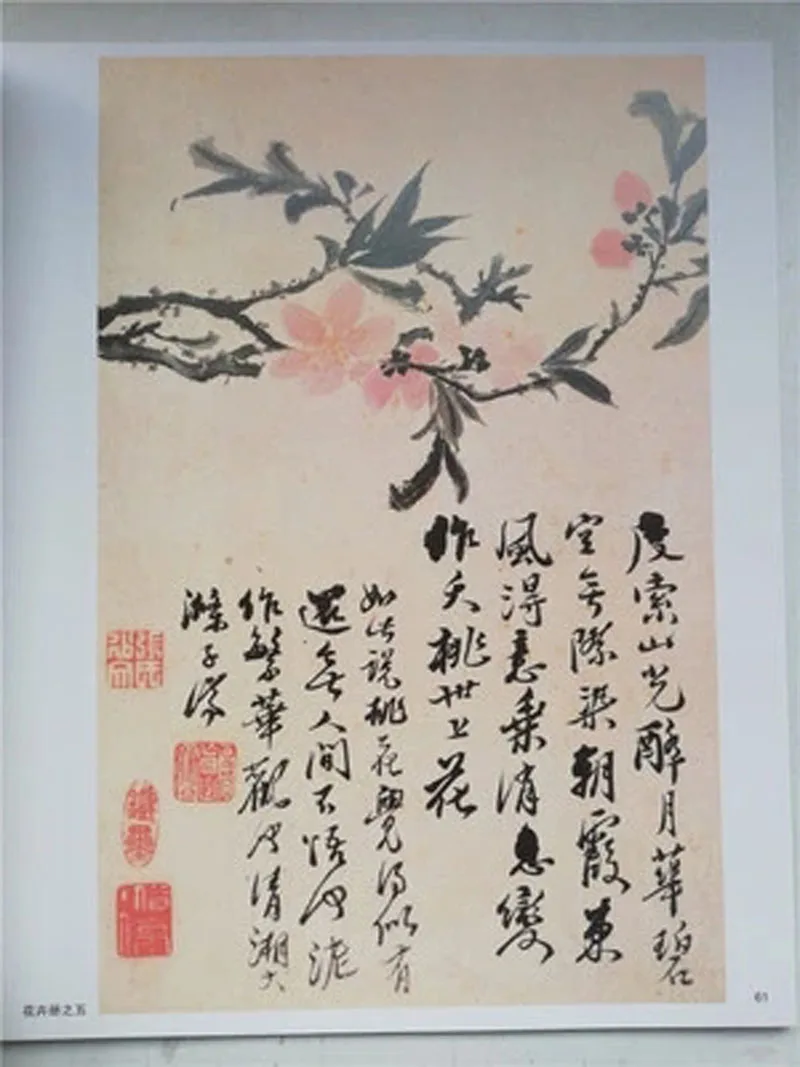 度索山光醉月華碧
空無際染朝霞東
風得意乘消息變
作夭桃世上花
如此說桃花覺得似有
還無人間不悟此泥
作繁華觀也清湘大
滌子濟
花卉册之五
61